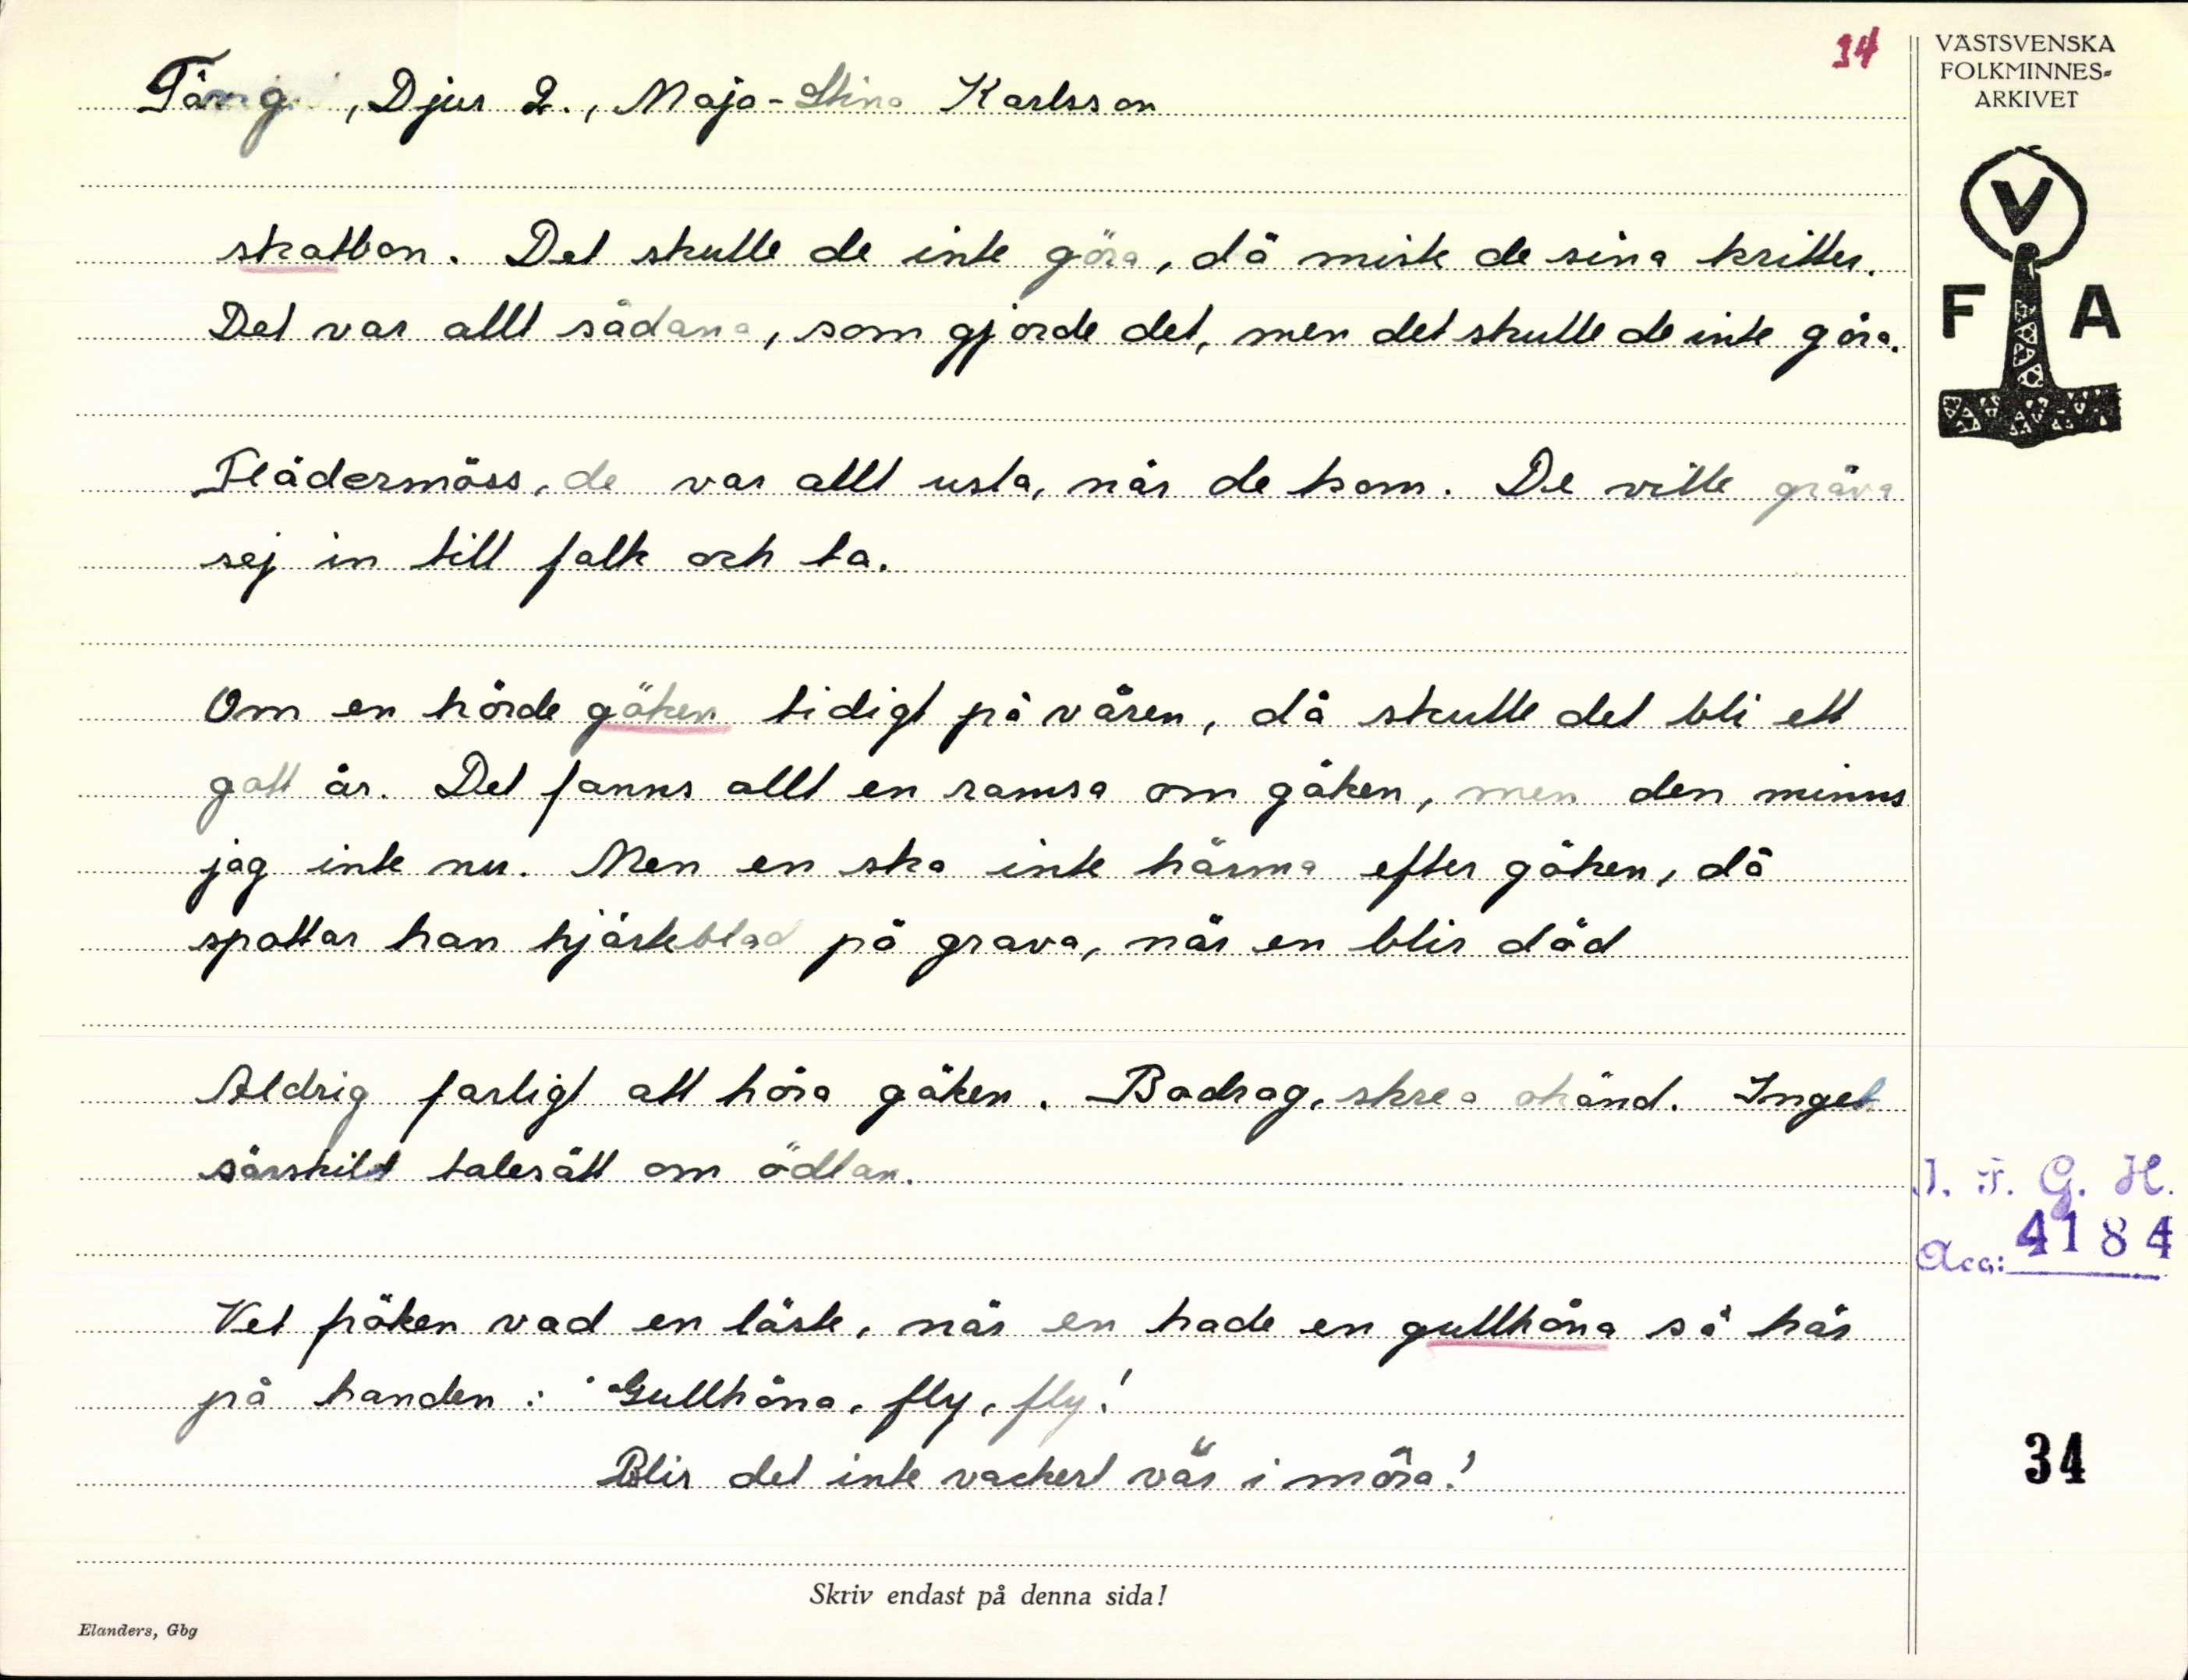 34
VÄSTSVENSKA
FOLKMINNES-
ARKIVET
, Djur 2., Maja-Stina Karlsson
skatbon. Det skulle de inte göra, då miste de sina kritter.
Det var allt sådana, som gjorde det, men det skulle de inte göra.
V
F A
Flädermöss, de var allt usta, när de kom. De ville gräva
sej in till folk och ta.
Om en hörde göken tidigt på våren, då skulle det bli ett
gott år. Det fanns allt en ramsa om göken, men den minns
jag inte nu. Men en ska inte härma efter göken, då
spottar han hjärteblod på grava, när en blir död
Aldrig farligt att höra göken. Bodrag, skrea okänd. Inget
särskilt talesätt om ödlan.
I. F. G. H.
Acc: 4184
Vet fröken vad en läste, när en hade en gullhöna så här
på handen: "Gullhöna, fly, fly!
Blir det inte vackert vär i möra!
34
Skriv endast på denna sida!
Elanders, Gbg